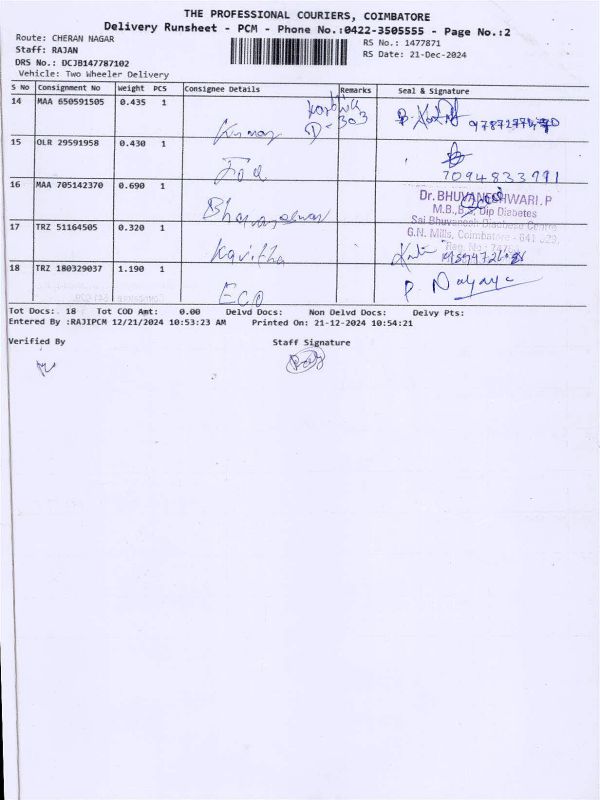 THE PROFESSIONAL COURIERS, COIMBATORE
Delivery Runsheet - PCM - Phone No.:0422-3505555 - Page No.:2
Route: CHERAN NAGAR
RS No.: 1477871
Staff: RAJAN
RS Date: 21-Dec-2024
DRS No.: DCJB147787102
Vehicle: Two Wheeler Delivery
S No Consignment No Weight PCS Consignee Details Remarks Seal & Signature
14 MAA 650591505 0.435 1
D-303
Kumar
15 OLR 29591958 0.430 1
7094833791
16 MAA 705142370 0.690 1
Dr. BHUVANESHWARI. P
M.B.,B.S, Dip Diabetes
Sai Bhuvanesh Diabetes Centre
G.N. Mills, Coimbatore - 641 029.
17 TRZ 51164505 0.320 1
Kavitha
18 TRZ 180329037 1.190 1
ECO
Tot Docs: 18 Tot COD Amt: 0.00 Delvd Docs: Non Delvd Docs: Delvy Pts:
Entered By :RAJIPCM 12/21/2024 10:53:23 AM Printed On: 21-12-2024 10:54:21
Verified By Staff Signature